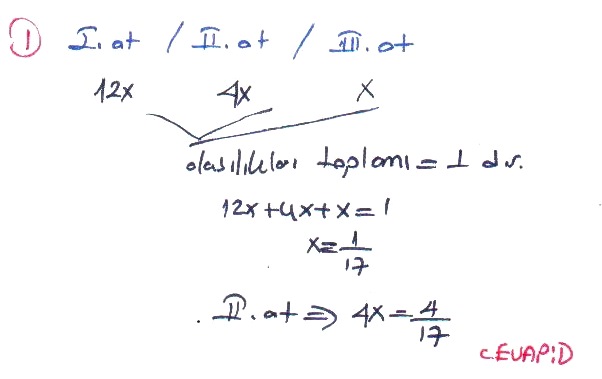 ① I. at / II. at / III. at
12x 4x x
olasılıkları toplamı = 1 dir.
12x+4x+x=1
x=1/17
. II. at ⇒ 4x = 4/17
CEVAP:D